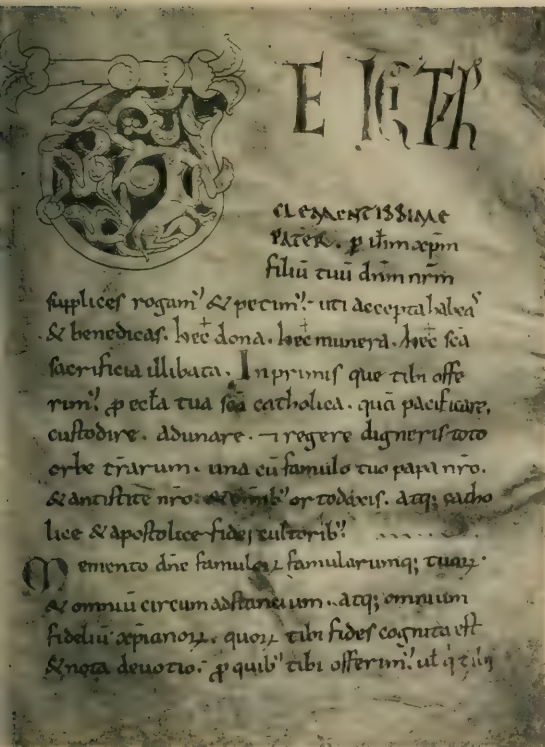 TE IGIT᷑
CLEMENTISSIME
PATER. ꝑ ihm xpm
filiu tuu dnm nrm
supplices rogam᾽ & petim᾽. uti accepta habeas
& benedicas. hec dona. hec munera. hec sca
sacrificia illibata. Inprimis que tibi offe
rim᾽. ꝓ eccla tua sca catholica. qua pacificare,
custodire. adunare. ⁊ regere digneris toto
orbe trarum. una cu famulo tuo papa nro.
& antistite nro. & omnib᾽ ortodoxis. atq; catho
lice & apostolice fidei cultorib᾽.
Memento dne famuloꝝ famularumq; tuaꝝ.
& omniu circum adstancium. atq; omnium
fideliu xpianoꝝ. quoꝝ tibi fides cognita est
& nota deuotio. ꝓ quib᾽ tibi offerim᾽. ut q tibi